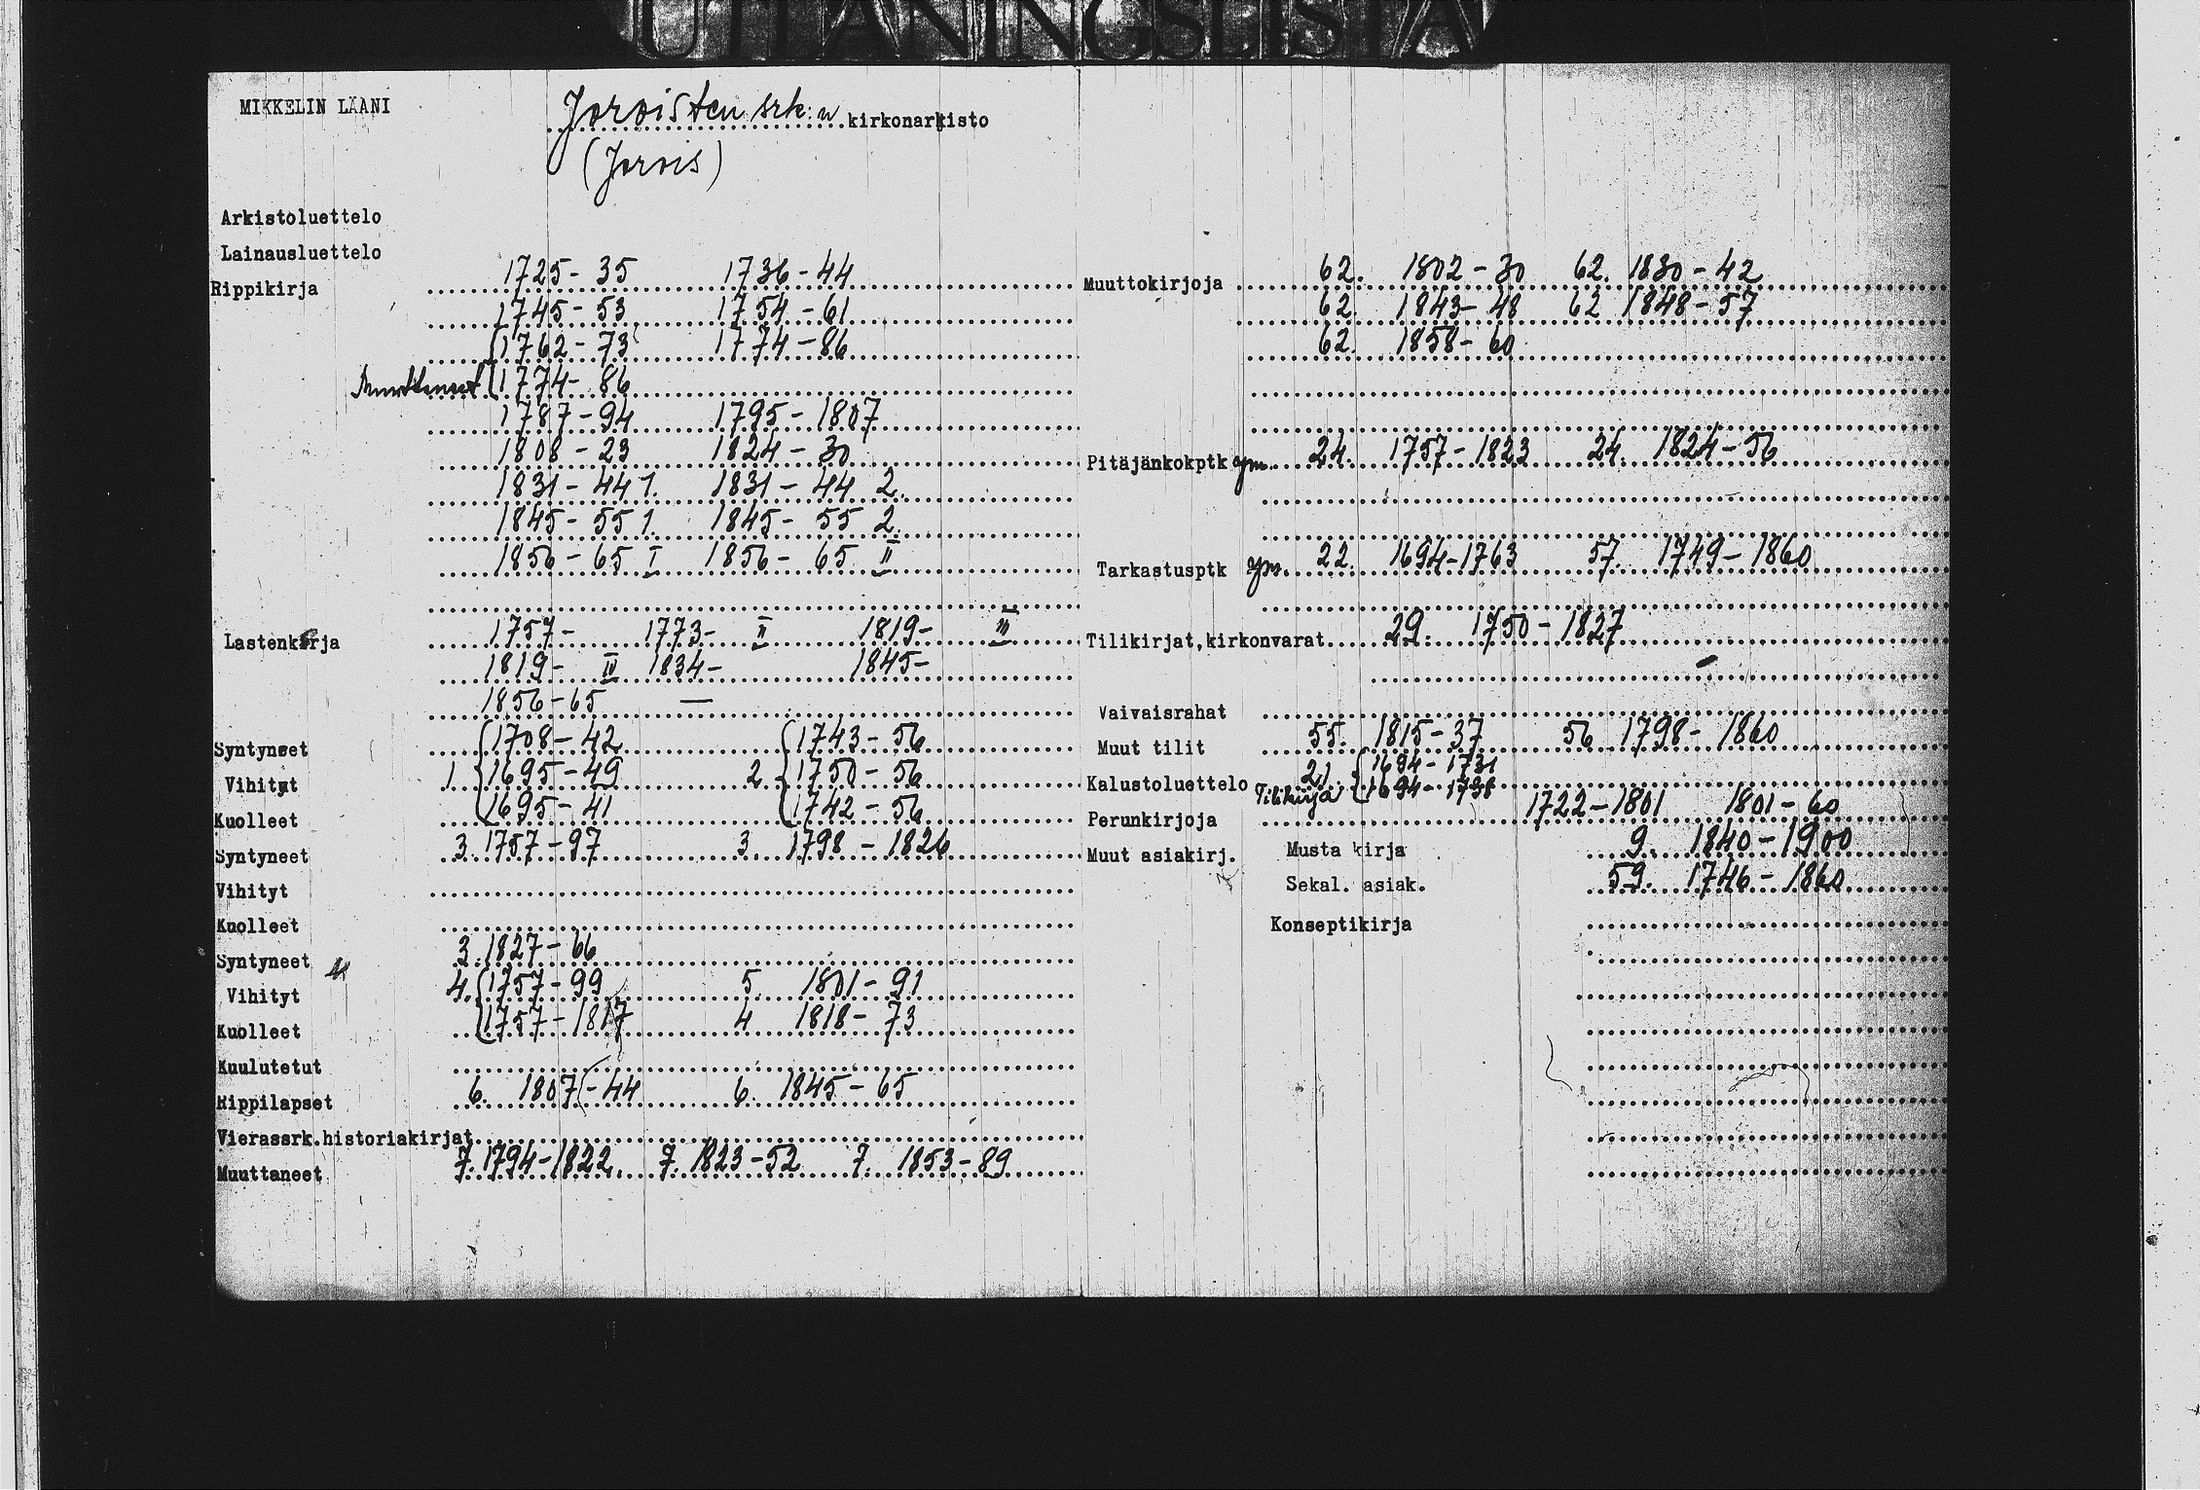 UTTANINGSLISTA
MIKKELIN LÄÄNI
Joroisten srk:n kirkonarkisto
(Jorois)
Arkistoluettelo
Lainausluettelo
Rippikirja 1725-35 1736-44
1745-53 1754-61
1762-73 1774-86
1774-86
1787-94 1795-1807
1808-23 1824-30
1831-44 1. 1831-44 2.
1845-55 1. 1845-55 2.
1856-65 I 1856-65 II
Lastenkirja 1757- 1773- II 1819- III
1819- IV 1834- 1845-
1856-65 —
Syntyneet 1708-42 1743-56
Vihityt 1. 1695-49 2. 1750-56
Kuolleet 1695-41 1742-56
Syntyneet 3. 1757-97 3. 1798-1826
Vihityt
Kuolleet
Syntyneet 3. 1827-66
Vihityt 4. 1757-99 5. 1801-91
Kuolleet 1757-1817 4 1818-73
Kuulutetut
Rippilapset 6. 1807-44 6. 1845-65
Vierassrk.historiakirjat
Muuttaneet 7. 1794-1822. 7. 1823-52 7. 1853-89
Muuttokirjoja 62. 1802-30 62. 1830-42
62. 1843-48 62 1848-57
62. 1858-60
Pitäjänkokptk ym. 24. 1757-1823 24. 1824-56
Tarkastusptk ym. 22. 1694-1763 57. 1749-1860
Tilikirjat,kirkonvarat 29. 1750-1827
Vaivaisrahat
Muut tilit 55. 1815-37 56 1798-1860
Kalustoluettelo Tilikirja 21. 1694-1731
1694-1738
Perunkirjoja 1722-1801 1801-60
Muut asiakirj. Musta kirja 9. 1840-1900
Sekal. asiak. 59. 1746-1860
Konseptikirja